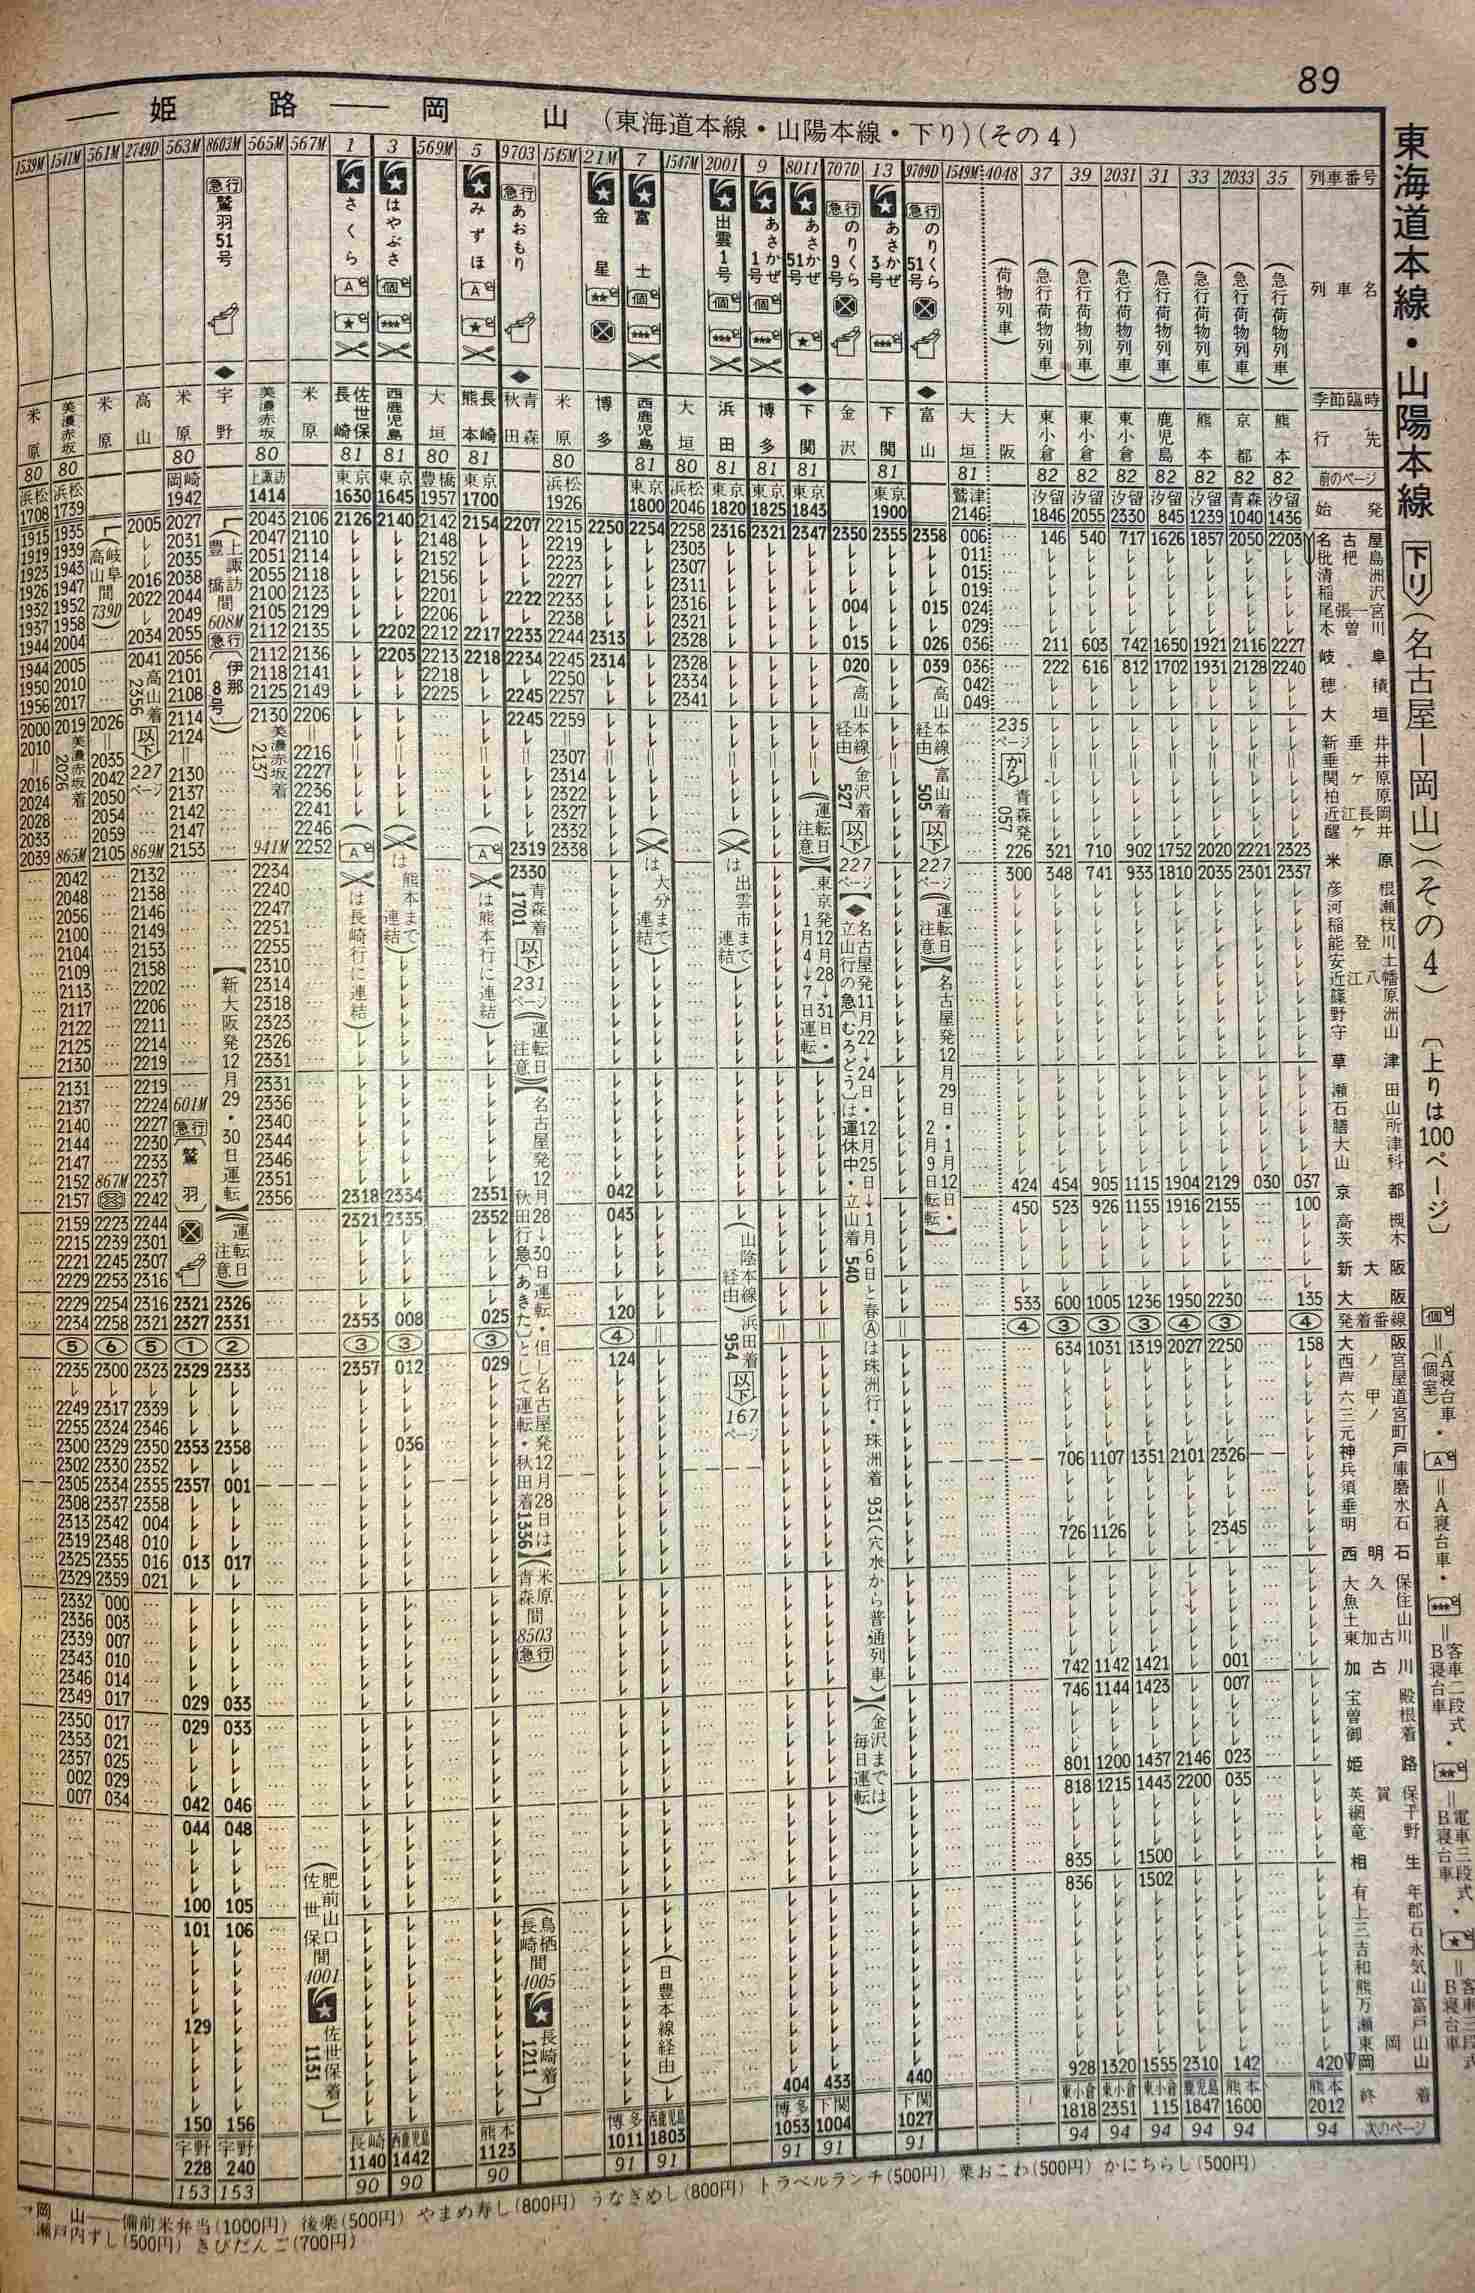 89
――姫路――岡山(東海道本線・山陽本線・下り)(その4)
東海道本線・山陽本線 下り (名古屋―岡山)(その4) 〔上りは100ページ〕
列車番号 1539M 1541M 561M 2749D 563M 8603M 565M 567M 1 3 569M 5 9703 1545M 21M 7 1547M 2001 9 8011 707D 13 9709D 1549M 4048 37 39 2031 31 33 2033 35
列車名
急行 鷲羽51号
さくら
はやぶさ
みずほ
急行 あおもり
金星
富士
出雲1号
あさかぜ1号
あさかぜ51号
急行 のりくら9号
あさかぜ3号
急行 のりくら51号
(荷物列車)
(急行荷物列車)
(急行荷物列車)
(急行荷物列車)
(急行荷物列車)
(急行荷物列車)
(急行荷物列車)
(急行荷物列車)
季節臨時
行先 米原 美濃赤坂 米原 高山 米原 宇野 美濃赤坂 米原 長崎 佐世保 西鹿児島 大垣 熊本 長崎 秋田 青森 米原 博多 西鹿児島 大垣 浜田 博多 下関 金沢 下関 富山 大垣 大阪 東小倉 東小倉 東小倉 鹿児島 熊本 京都 熊本
前のページ 80 80 80 80 81 81 80 81 80 81 80 81 81 81 81 81 82 82 82 82 82 82 82
始発 浜松 1708 浜松 1739 岡崎 1942 上諏訪 1414 東京 1630 東京 1645 豊橋 1957 東京 1700 浜松 1926 東京 1800 浜松 2046 東京 1820 東京 1825 東京 1843 東京 1900 鷲津 2146 汐留 1846 汐留 2055 汐留 2330 汐留 845 汐留 1239 青森 1040 汐留 1436
名古屋 1915 1935 2005 2027 2043 2106 2126 2140 2142 2154 2207 2215 2250 2254 2258 2316 2321 2347 2350 2355 2358 006 … 146 540 717 1626 1857 2050 2203
枇杷島 1919 1939 2031 2047 2110 2148 2219 2303 011
清洲 1923 1943 2035 2051 2114 2152 2223 2307 015
稲沢 1926 1947 2016 2038 2055 2118 2156 2227 2311 019
尾張一宮 1932 1952 2022 2044 2100 2123 2201 2222 2233 2316 004 015 024
木曽川 1937 1958 2049 2105 2129 2206 2238 2321 029
岐阜 1944 2004 2034 2055 2112 2135 2202 2212 2217 2233 2244 2313 2328 015 026 036 211 603 742 1650 1921 2116 2227
1944 2005 2041 2056 2112 2136 2203 2213 2218 2234 2245 2314 2328 020 039 036 222 616 812 1702 1931 2128 2240
穂積 1950 2010 2101 2118 2141 2218 2250 2334 042
大垣 1956 2017 2108 2125 2149 2225 2245 2257 2341 049
2000 2019 2026 2114 2130 2206 2245 2259
新垂井
垂井 2010 2035 2124 2216 2307
関ヶ原 2016 2042 2130 2227 2314
柏原 2024 2050 2137 2236 2322
近江長岡 2028 2054 2142 2241 2327
醒ヶ井 2033 2059 2147 2246 2332
米原 2039 865M 2105 869M 2153 941M 2252 2319 2338 226 321 710 902 1752 2020 2221 2323
2042 2132 2234 2330 300 348 741 933 1810 2035 2301 2337
彦根 2048 2138 2240
河瀬 2056 2146 2247
稲枝 2100 2149 2251
能登川 2104 2153 2255
安土 2109 2158 2310
近江八幡 2113 2202 2314
篠原 2117 2206 2318
野洲 2122 2211 2323
守山 2125 2214 2326
草津 2130 2219 2331
2131 2219 2331
瀬田 2137 2224 2336
石山 2140 2227 2340
膳所 2144 2230 2344
大津 2147 2233 2346
山科 2152 867M 2237 2351
京都 2157 2242 2356 2318 2334 2351 042 424 454 905 1115 1904 2129 030 037
2159 2223 2244 2321 2335 2352 043 450 523 926 1155 1916 2155 … 100
高槻 2215 2239 2301
茨木 2221 2245 2307
新大阪 2229 2253 2316
大阪 2229 2254 2316 2321 2326
2234 2258 2321 2327 2331 2353 008 025 120 533 600 1005 1236 1950 2230 135
発着番線 ⑤ ⑥ ⑤ ① ② ③ ③ ③ ④ ④ ③ ③ ③ ④ ③ ④
大阪 2235 2300 2323 2329 2333 2357 012 029 124 634 1031 1319 2027 2250 158
西ノ宮
芦屋 2249 2317 2339
六甲道 2255 2324 2346
三ノ宮 2300 2329 2350 2353 2358 036
元町 2302 2330 2352
神戸 2305 2334 2355 2357 001 706 1107 1351 2101 2326
兵庫 2308 2337 2358
須磨 2313 2342 004
垂水 2319 2348 010
明石 2325 2355 016 013 017 726 1126 2345
西明石 2329 2359 021
2332 000
大久保 2336 003
魚住 2339 007
土山 2343 010
東加古川 2346 014
加古川 2349 017 029 033 742 1142 1421 001
2350 017 029 033 746 1144 1423 007
宝殿 2353 021
曽根 2357 025
御着 002 029
姫路 007 034 042 046 801 1200 1437 2146 023
044 048 818 1215 1443 2200 035
英賀保
網干
竜野
相生 100 105 835 1500
101 106 836 1502
有年
上郡
三石
吉永
和気
熊山
万富
瀬戸 129
東岡山
岡山 150 156 404 433 440 928 1320 1555 2310 142 420
終着 宇野 228 宇野 240 長崎 1140 西鹿児島 1442 熊本 1123 博多 1011 西鹿児島 1803 博多 1053 下関 1004 下関 1027 東小倉 1818 東小倉 2351 東小倉 115 鹿児島 1847 熊本 1600 熊本 2012
次のページ 153 153 90 90 90 91 91 91 91 91 94 94 94 94 94 94
(高山岐阜間 739D)
高山着 2356 以下 227ページ
(豊橋上諏訪間 608M 急行 (伊那8号))
美濃赤坂着 2026
美濃赤坂着 2137
601M 急行 (鷲羽
【新大阪発12月29・30日運転】(運転日注意)
(は長崎行に連結)
(は熊本まで連結)
(は熊本行に連結)
青森着 1701 以下 231ページ (運転日注意)
【名古屋発12月28→30日運転・但し名古屋発12月28日は秋田行急〔あきた〕として運転・秋田着1336】(米原青森間 8503 急行)
(は大分まで連結)
(は出雲市まで連結)
(山陰本線経由) 浜田着 954 以下 167ページ
(運転日注意)【東京発12月28→31日・1月4→7日運転】
(高山本線経由) 金沢着 527 以下 227ページ
【◆名古屋発11月22→24日・12月25日→1月6日と春Ⓐは珠洲行・珠洲着 931(穴水から普通列車)】(金沢までは毎日運転)
立山行の急〔むろどう〕は運休中・立山着 540
(高山本線経由) 富山着 505 以下 227ページ (運転日注意)
235ページから 青森発 057
(肥前山口佐世保間 4001 佐世保着 1151)
(鳥栖長崎間 4005 長崎着 1211)
(日豊本線経由)
=A寝台車(個室)・ A =A寝台車・ =B寝台車客車二段式・ =B寝台車電車三段式・ =B寝台車客車三段式
岡山――備前米弁当(1000円) 後楽(500円) やまめ寿し(800円) うなぎめし(800円) トラベルランチ(500円) 栗おこわ(500円) かにちらし(500円)
瀬戸内ずし(500円) きびだんご(700円)